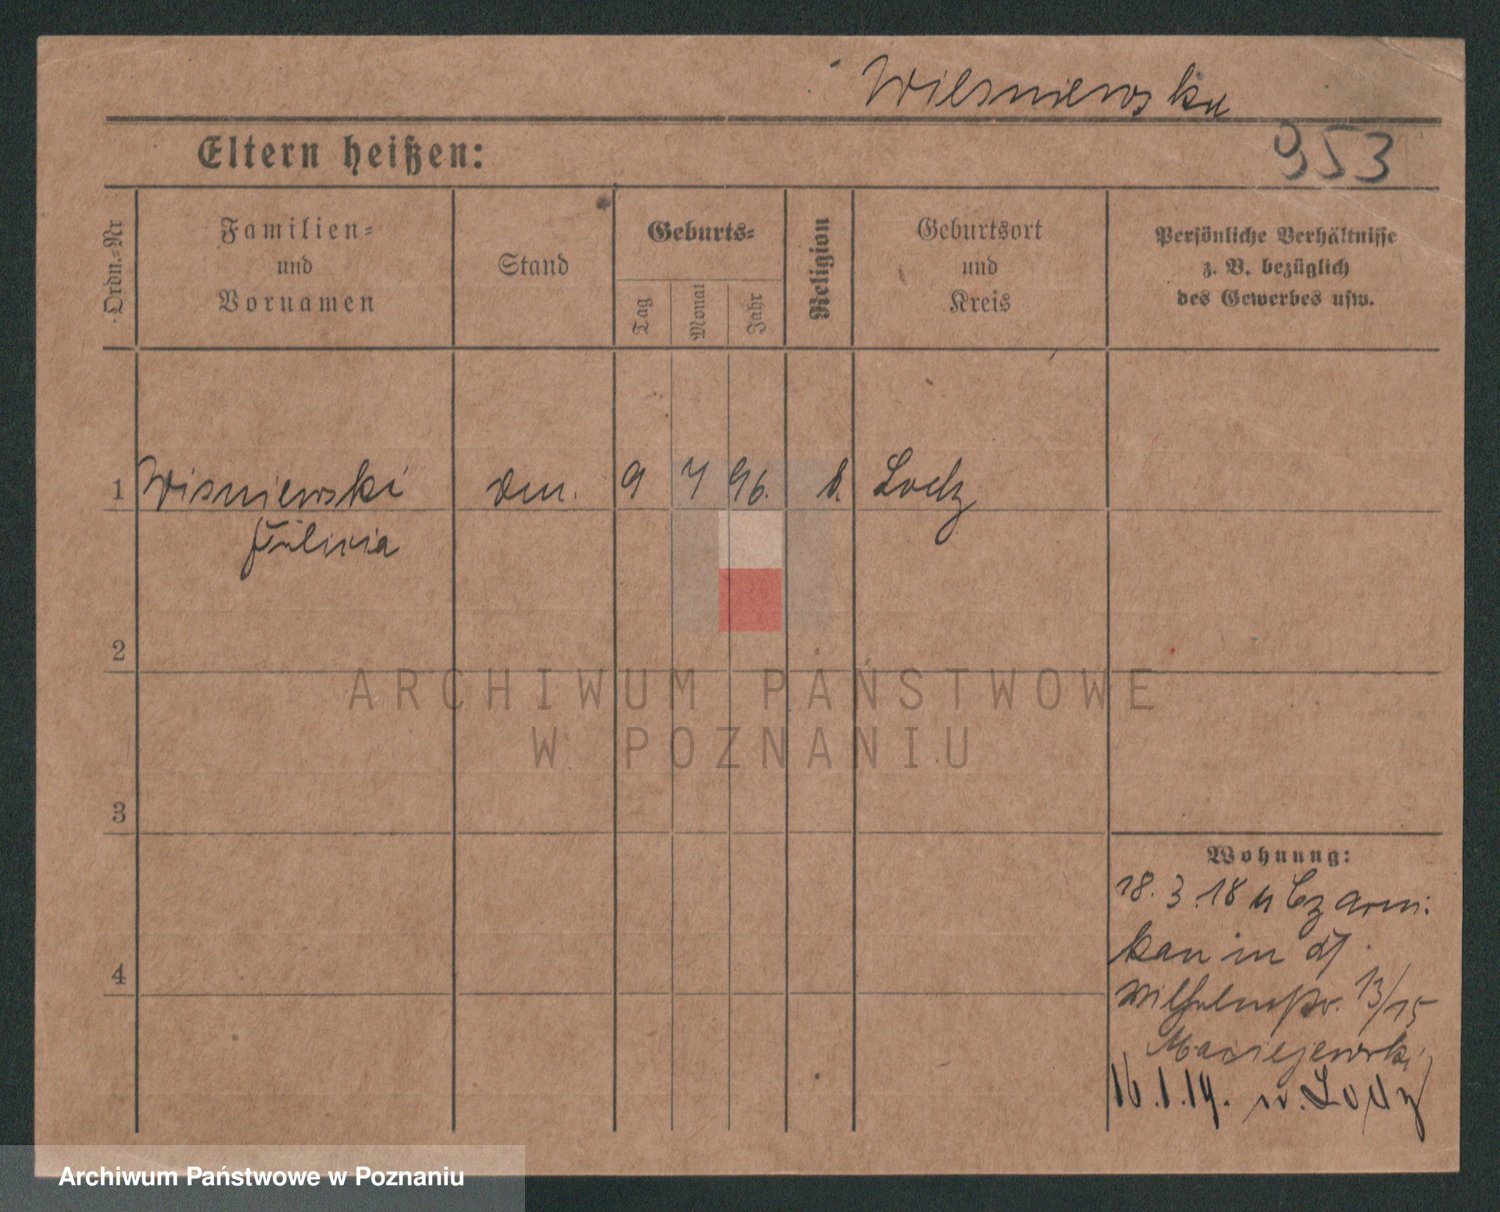 Wiesniewska
953
Eltern heißen:
Ordn.-Nr
Familien-
und
Vornamen
Stand
Geburts-
Tag
Monat
Jahr
Religion
Geburtsort
und
Kreis
Persönliche Verhältnisse
z. B. bezüglich
des Gewerbes usw.
1 Wisniewski 9 7 96. k. Lodz
Felicia
2
ARCHIWUM PAŃSTWOWE
W POZNANIU
3
Wohnung:
18.3.18 Czarni-
kau in
Wilhelmstr. 13/15
Maciejewski
4
16.1.19. Lodz
Archiwum Państwowe w Poznaniu